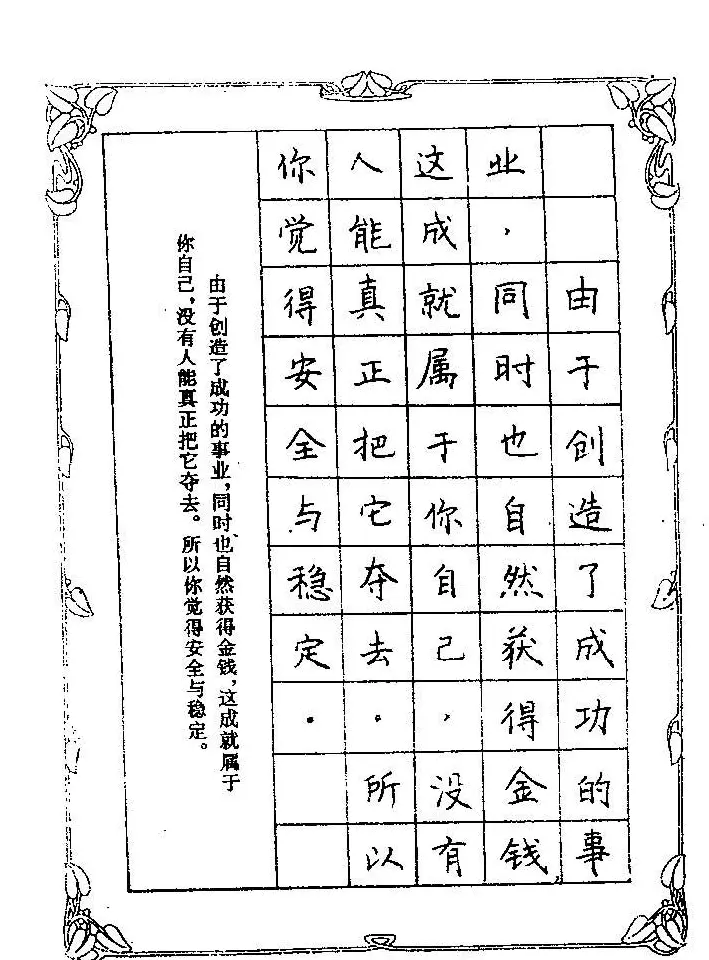 由于创造了成功的事
业，同时也自然获得金钱，
这成就属于你自己，没有
人能真正把它夺去。所以
你觉得安全与稳定。
由于创造了成功的事业，同时也自然获得金钱，这成就属于
你自己，没有人能真正把它夺去。所以你觉得安全与稳定。